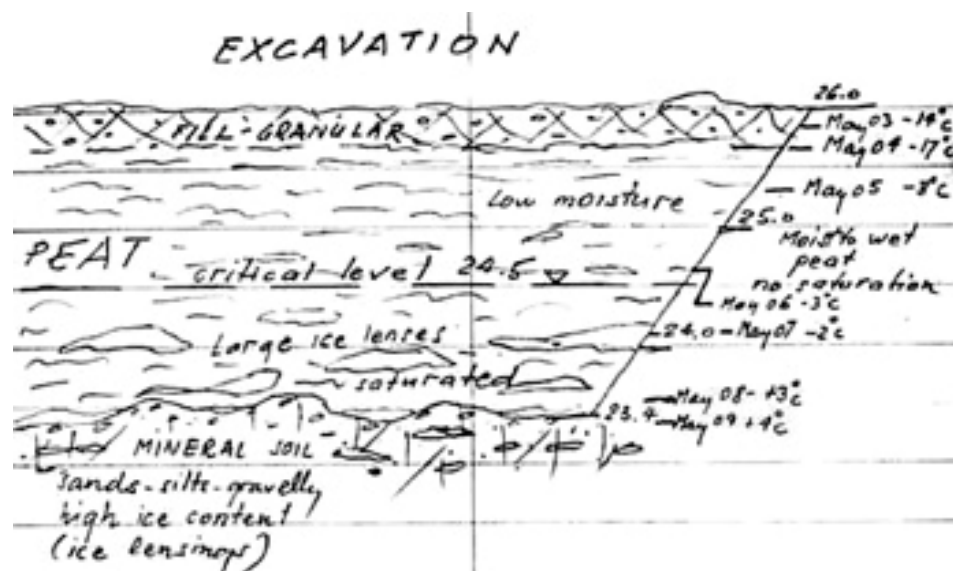 EXCAVATION
26.0
FILL-GRANULAR
May 03 -14°C
May 04 -17°C
Low moisture
May 05 -8°C
25.0
PEAT
Moist to wet
peat
no saturation
critical level 24.5
May 06 -3°C
24.0 May 07 -2°C
Large ice lenses
saturated
May 08 - +3°C
23.4
May 09 +4°C
MINERAL SOIL
Sands-silts-gravelly
high ice content
(ice lensings)